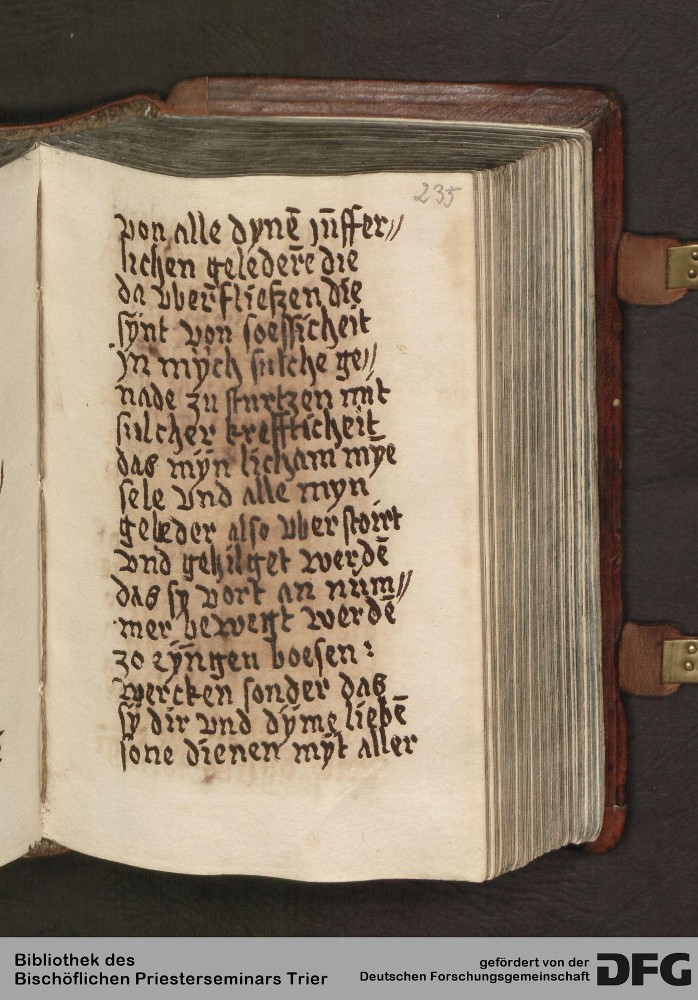 235
von alle dynē jūffer//
lichen geledere die
da vberfließen die
synt von soessicheit
jn mych sulche ge//
nade zu sturtzen mit
sulcher krefftcheit
das myn licham mȳe
sele vnd alle myn
geleder also vber stoirt
vnd gehilget werdē
das sy vort an nūm//
mer bewegt werdē
zo eyngen boesen :
wercken sonder das
sy dir vnd dyme liebē
sone dienen myt aller
Bibliothek des
Bischöflichen Priesterseminars Trier
gefördert von der
Deutschen Forschungsgemeinschaft
DFG